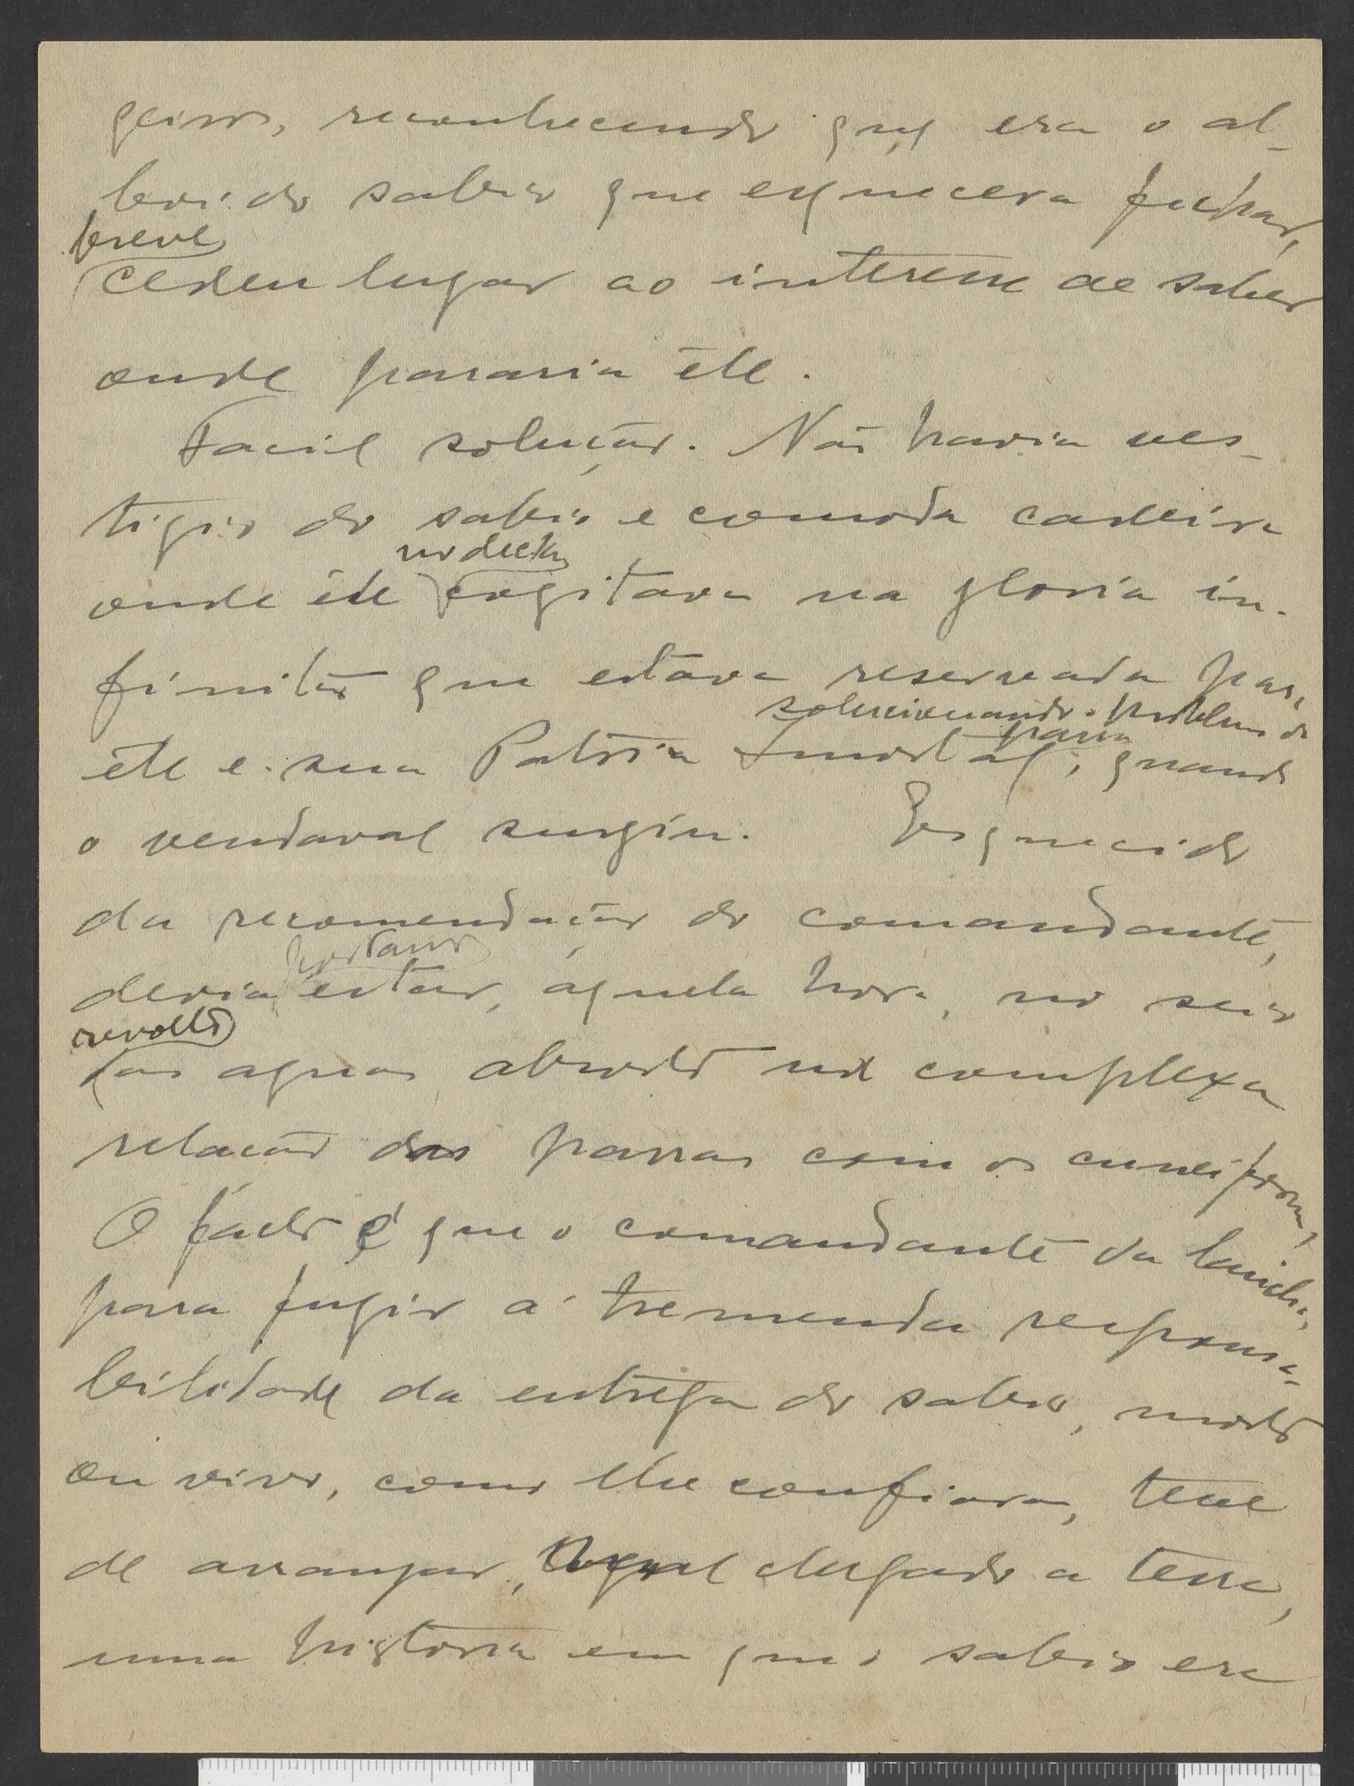 geiros, reconhecendo que era o al-
boi do sabio que esquecera fechar,
breve
cedeu lugar ao interesse de saber
onde pararia êle.
Facil solução. Não havia ves-
tigio do sabio e comoda cadeira
onde êle cogitava na gloria in-
finita que estava reservada para
solucionando o problema de
êle e sua Patria Imortal, quando
para
o vendaval surgiu. Esquecido
da recomendação do comandante,
portanto
devia estar, áquela hora, no seio
revolto
das aguas absorto na complexa
relação das parras com os cuneiform,
O facto é que o comandante da lancha,
para fugir á tremenda responsa-
bilidade da entrega do sabio, morto
ou vivo, como lhe confiara, teve
de arranjar, chegado a terra,
uma historia em que o sabio era